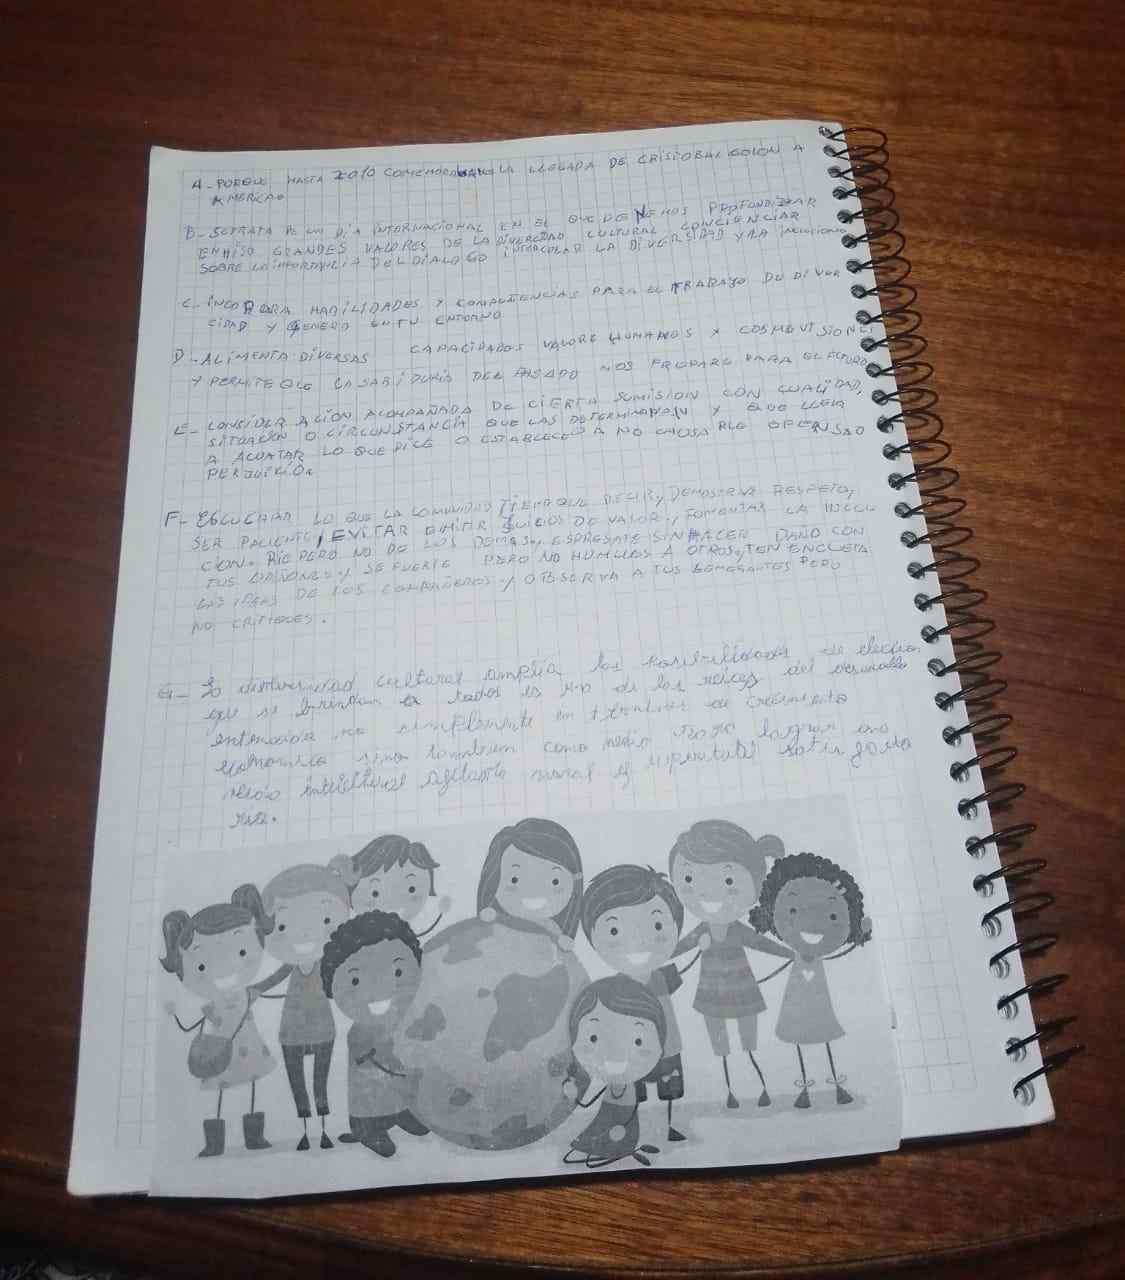 A-PORQUE HASTA 2010 CONEMORABANG LA LLEGADA DE CRISTOBAL COLON A
AMÉRICA.
B-SETRATA DE UN DIA INTERNACIONAL EN EL QUE DEVEMOS PROFONDIZAR
EN GRANDES VALORES DE LA DIVERSIDAD CULTURAL CONCIENCIAR
SOBRE LA IMPORTANCIA DEL DIALOGO LA DIVERSIDAD Y LA
C-INCORPORA HABILIDADES Y COMPETENCIAS PARA EL TRABAJO DE DIVER
CIDAD Y GENERO EN TU ENTORNO
D-ALIMENTA DIVERSAS CAPACIDADES VALORE HUMANOS Y COSMOVISIONES
Y PERMITE QUE LA SABIDURIA DEL PASADO NOS PREPARE PARA EL FUTURO
E-CONSIDERACION ACOMPAÑADA DE CIERTA SUMISION CON CUALIDAD,
SITUACION O CIRCUNSTANCIA QUE LAS DETERMINABAN Y QUE LLEVA
A ACANTAR LO QUE DICE O ESTABLECE A NO CAUSARLE OFENSAO
PERJUICIO.
F-ESCUCHAR LO QUE LA COMUNIDAD TIENE QUE DECIR, DEMOSTRAR RESPETO,
SER PACIENTE, EVITAR EMITIR JUICIOS DE VALOR, FOMENTAR LA INCLU
CION. RIE PERO NO DE LOS DEMAS, ESPRESATE SIN HACER DAÑO CON
TUS OPIONES Y SE FUERTE PERO NO HUMILLES A OTROS, TEN ENCUETA
LAS IDEAS DE TUS COMPAÑEROS Y OBSERVA A TUS SEMEGANTES PERO
NO CRITIQUES.
G-La cultural amplia las posibilidades de eleccion
que se brindan a todos es de las raices del desarrollo
entendido no simplemente en terminos de crecimiento
economico sino tambien como medio para lograr una
moral y espiritual satisfacto
ria.